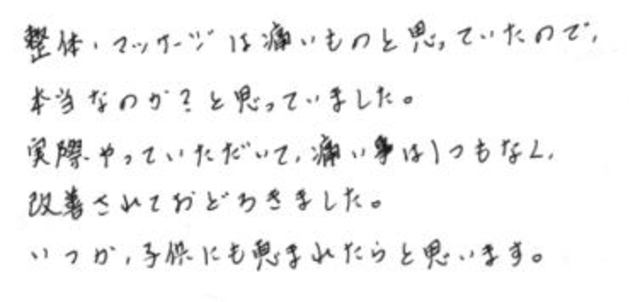 整体・マッサージは痛いものと思っていたので、
本当なのか？と思っていました。
実際やっていただいて、痛い事は1つもなく、
改善されておどろきました。
いつか、子供にも恵まれたらと思います。